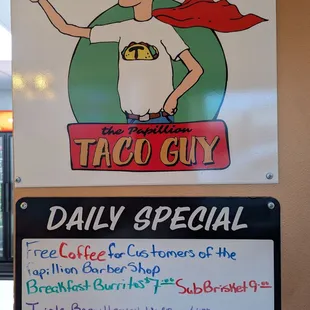 T
the Papillion
TACO GUY
DAILY SPECIAL
Free Coffee for Customers of the
Papillion Barber Shop
Breakfast Burritos $7.00 Sub Brisket 9.00